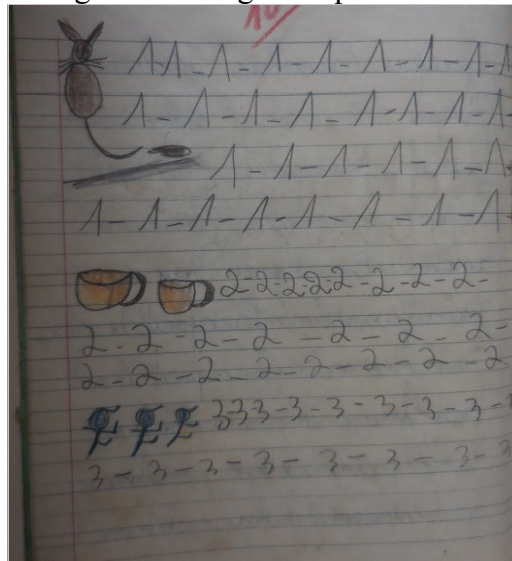 10
1 1 - 1 - 1 - 1 - 1 - 1 - 1 - 1
1 - 1 - 1 - 1 - 1 - 1 - 1 - 1
1 - 1 - 1 - 1 - 1 - 1
1 - 1 - 1 - 1 - 1 - 1 - 1 - 1 -
2 - 2 - 2 - 2 - 2 - 2 - 2 - 2 -
2 - 2 - 2 - 2 - 2 - 2 - 2 -
2 - 2 - 2 - 2 - 2 - 2 - 2 - 2
3 3 3 - 3 - 3 - 3 - 3 - 3 - 3 -
3 - 3 - 3 - 3 - 3 - 3 - 3 - 3